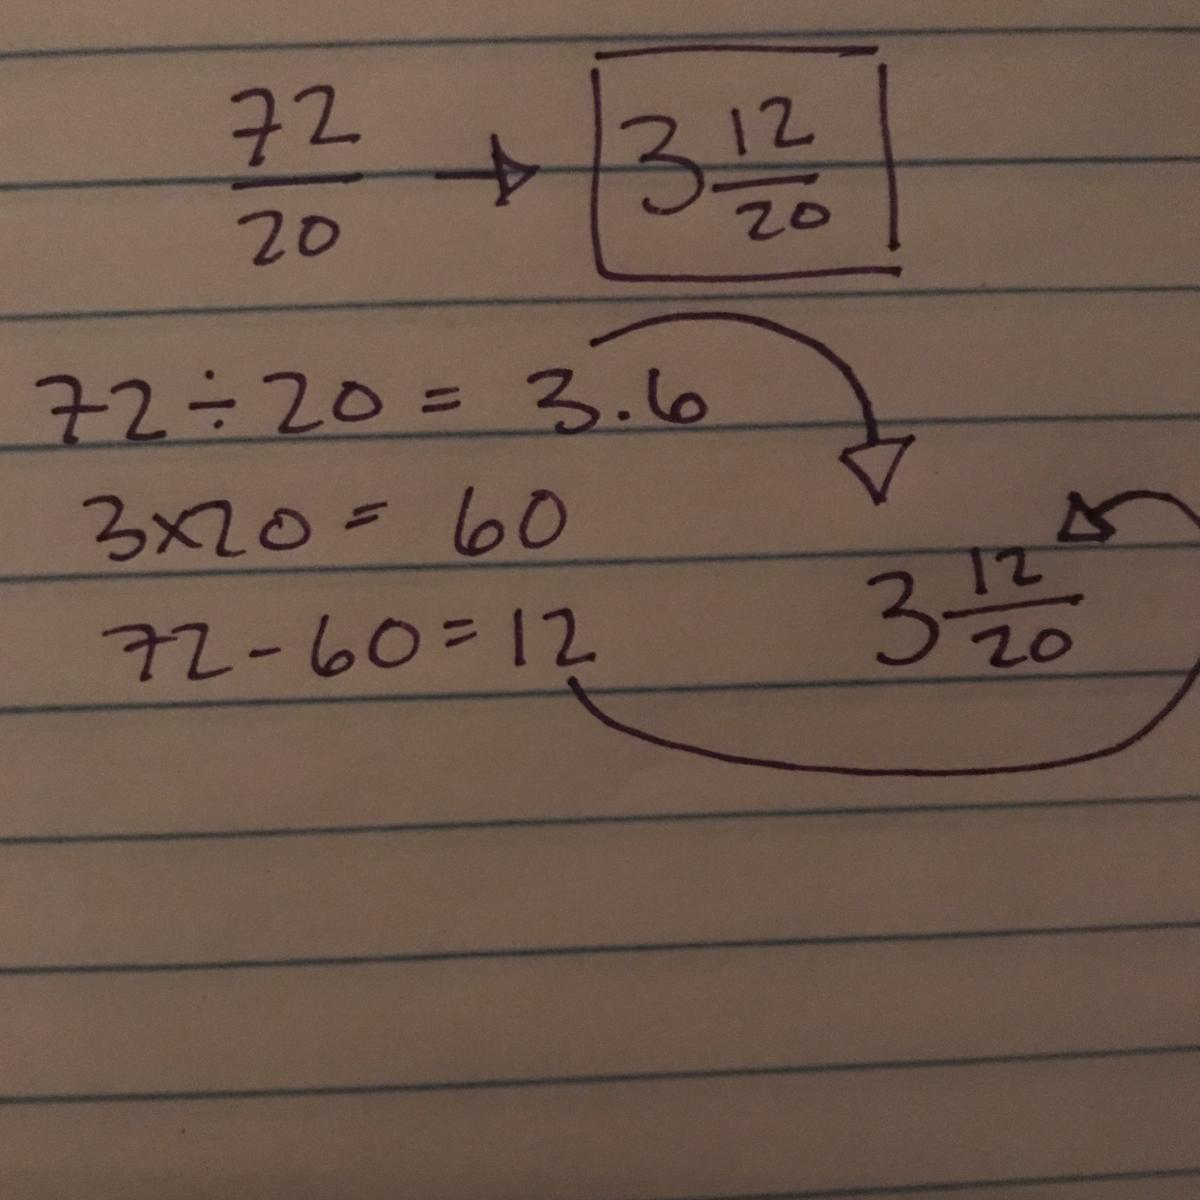 72/20 → 3 12/20
72 ÷ 20 = 3.6
3x20 = 60
72 - 60 = 12
3 12/20